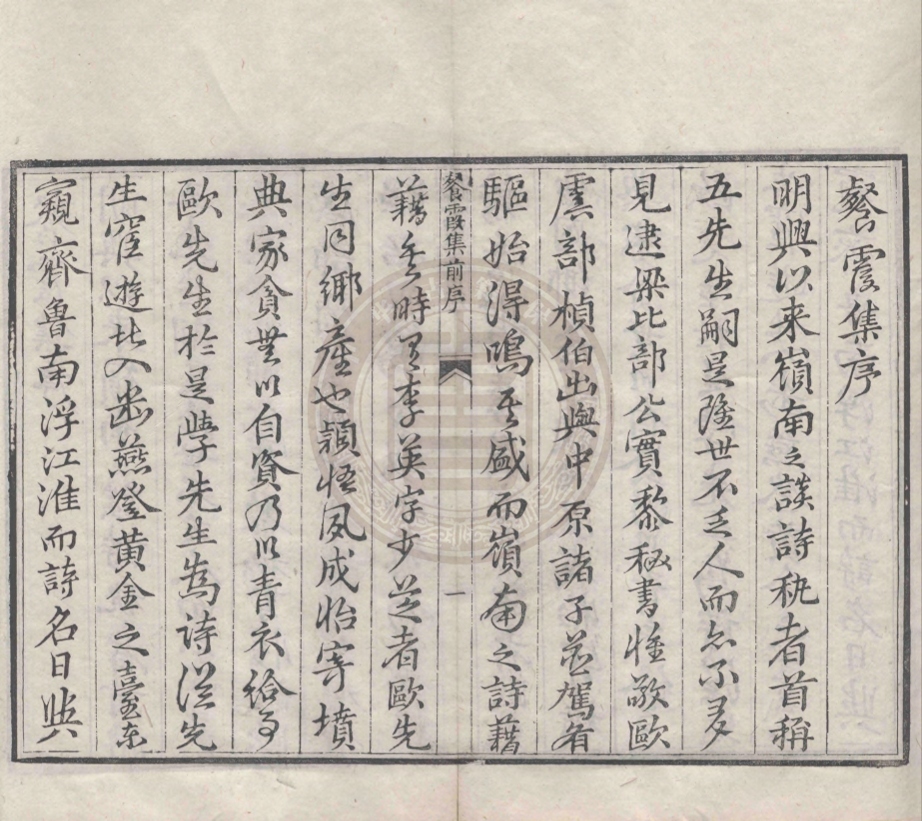 餐霞集序
明興以来嶺南之談詩執者首稱
五先生嗣是隆世不乏人而亦不多
見逮梁比部公實黎秘書惟敬歐
虞部楨伯出與中原諸子並駕有
驅始得鳴其盛而嶺南之詩藉
餐霞集前序
一
藉矣時又李英字少芝者歐先
生同鄉產也穎悟夙成怡寄墳
典家貧無以自資乃以青衣給事
歐先生於是學先生為詩從先
生宦遊北入幽燕登黄金之臺東
窺齊魯南浮江淮而詩名日與